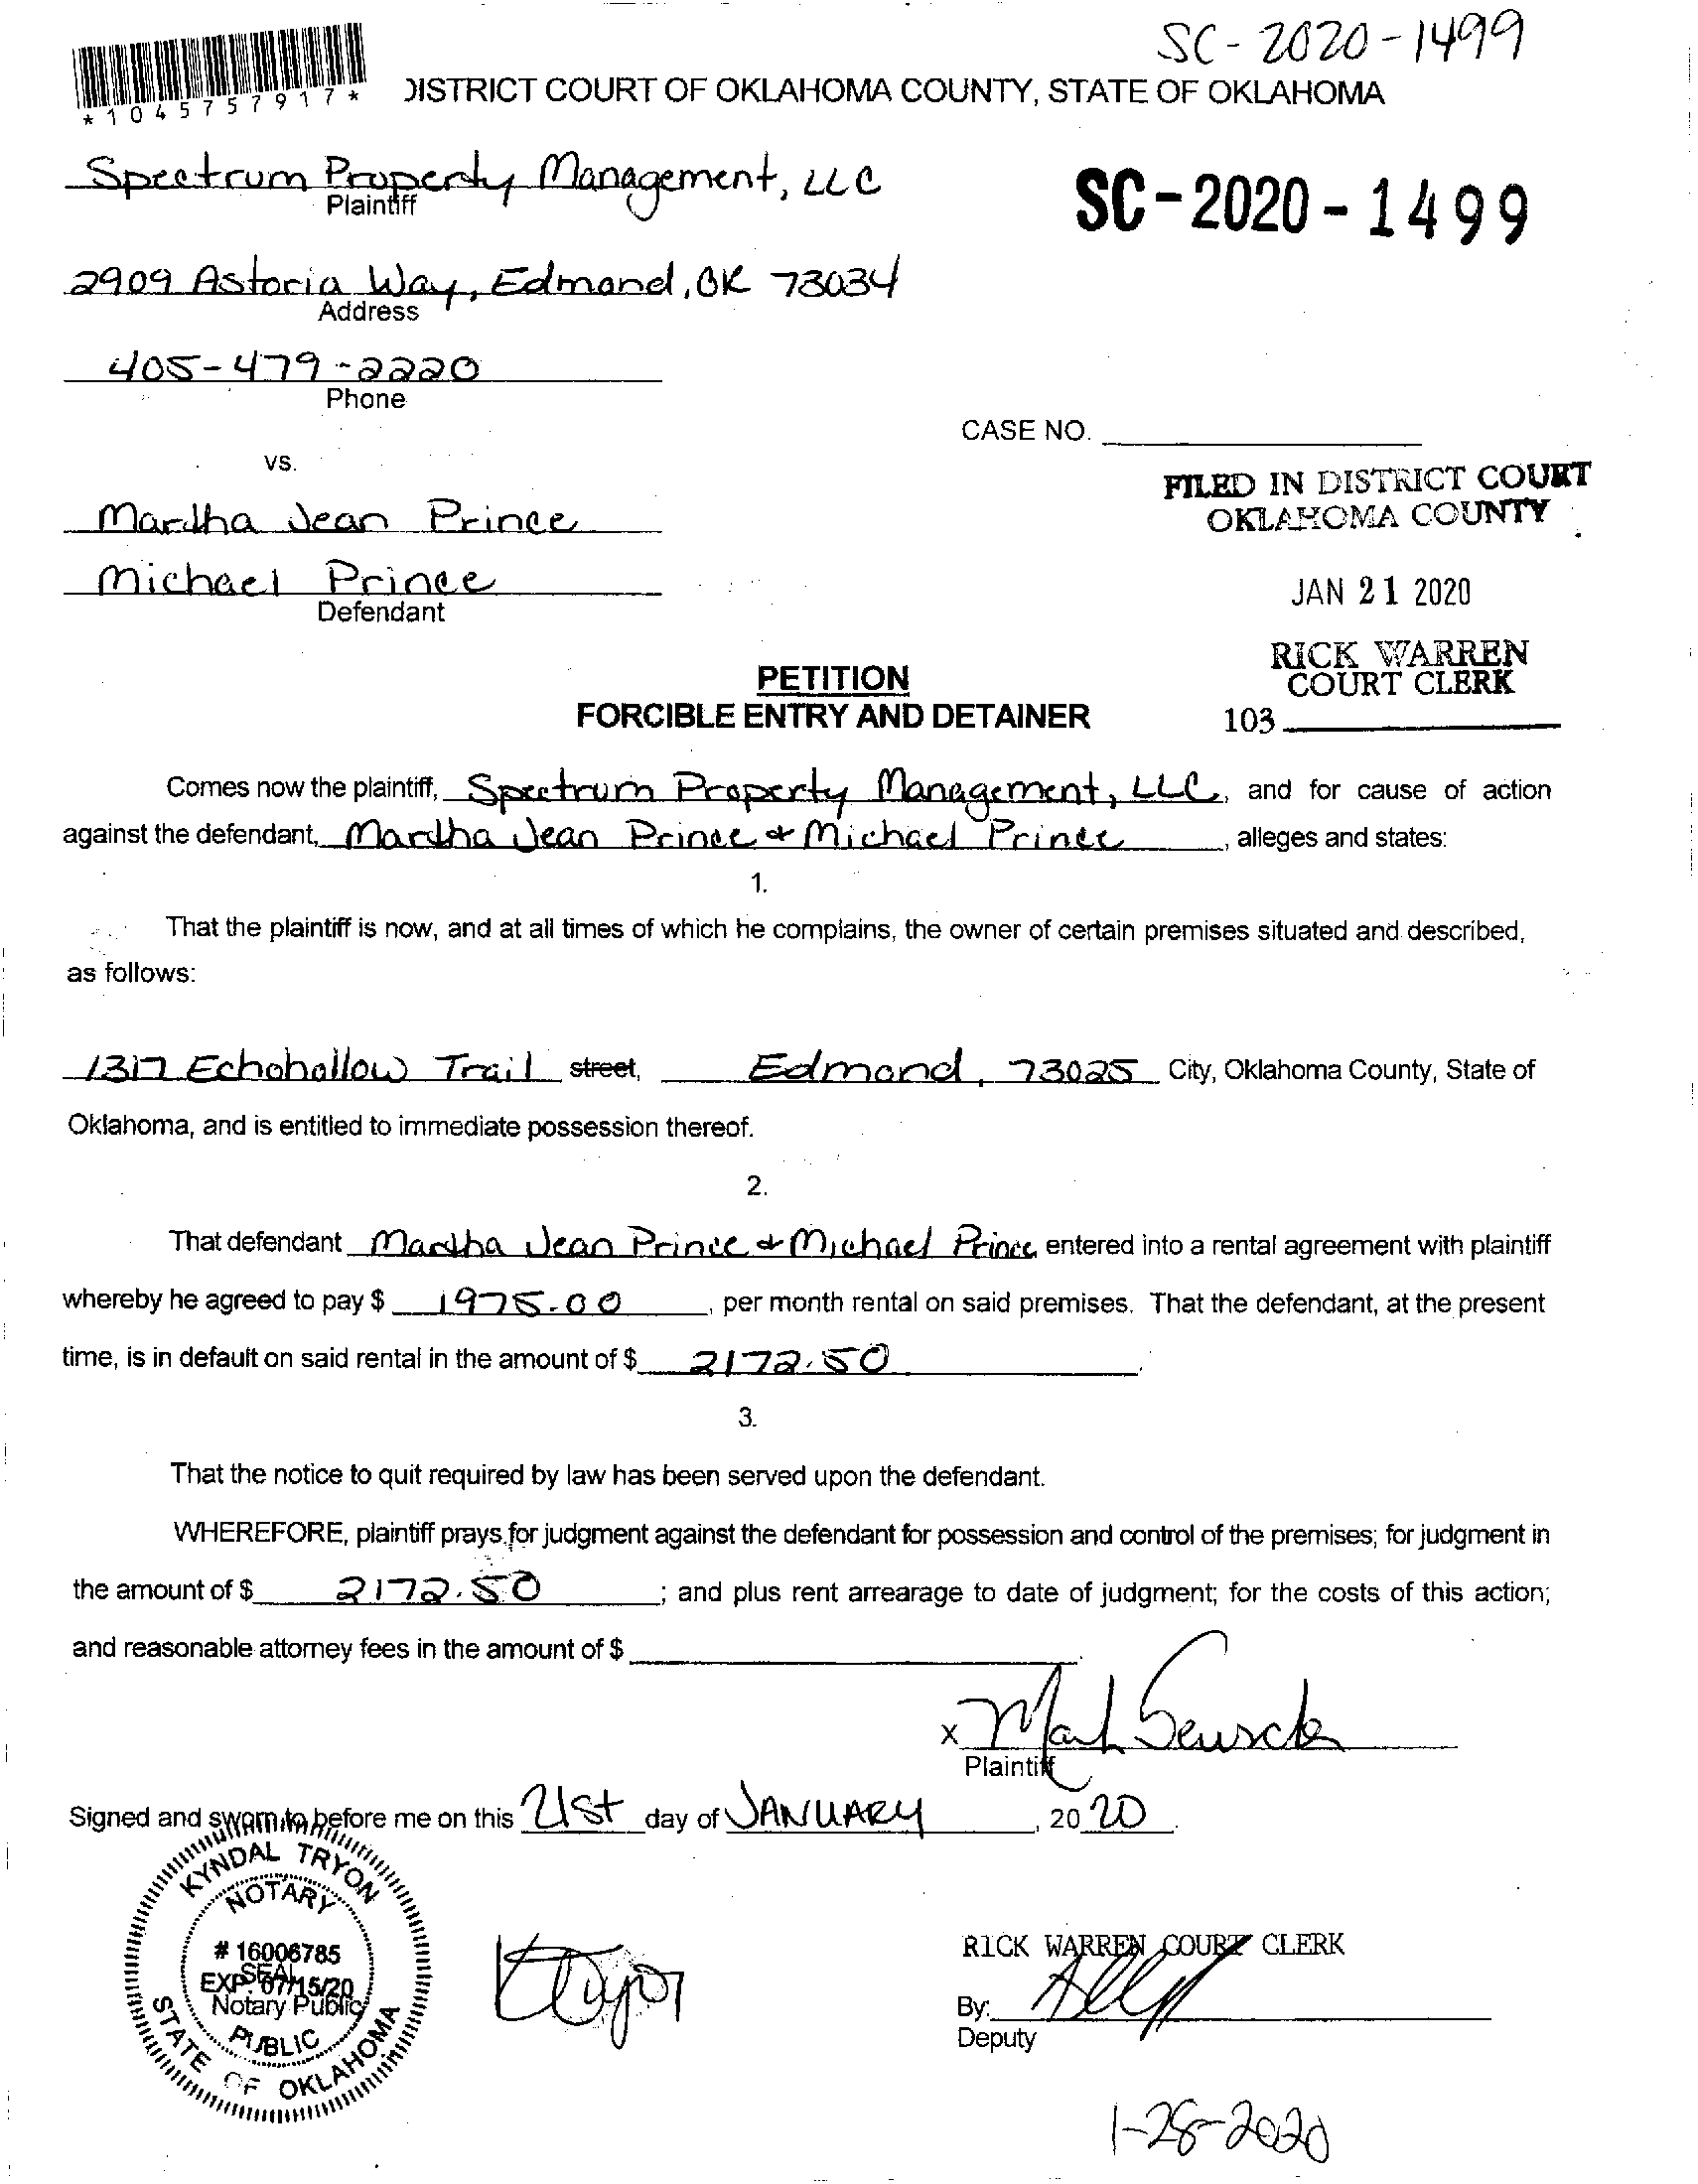 SC-2020-1499
*1045757917*
DISTRICT COURT OF OKLAHOMA COUNTY, STATE OF OKLAHOMA
Spectrum Property Management, LLC
Plaintiff
SC-2020-1499
2909 Astoria Way, Edmond, OK 73034
Address
405-479-2220
Phone
CASE NO.
vs.
FILED IN DISTRICT COURT
OKLAHOMA COUNTY
Martha Jean Prince
Michael Prince
Defendant
JAN 21 2020
RICK WARREN
COURT CLERK
103
PETITION
FORCIBLE ENTRY AND DETAINER
Comes now the plaintiff, Spectrum Property Management, LLC, and for cause of action
against the defendant, Martha Jean Prince & Michael Prince, alleges and states:
1.
That the plaintiff is now, and at all times of which he complains, the owner of certain premises situated and described,
as follows:
1317 Echohollow Trail street, Edmond, 73025 City, Oklahoma County, State of
Oklahoma, and is entitled to immediate possession thereof.
2.
That defendant Martha Jean Prince & Michael Prince entered into a rental agreement with plaintiff
whereby he agreed to pay $ 1975.00, per month rental on said premises. That the defendant, at the present
time, is in default on said rental in the amount of $ 2172.50.
3.
That the notice to quit required by law has been served upon the defendant.
WHEREFORE, plaintiff prays for judgment against the defendant for possession and control of the premises; for judgment in
the amount of $ 2172.50; and plus rent arrearage to date of judgment; for the costs of this action;
and reasonable attorney fees in the amount of $
x
Plaintiff
Signed and sworn to before me on this 21st day of JANUARY, 2020
KYNDAL TRYON
NOTARY
# 16006785
SEAL
EXP. 07/15/20
Notary Public
PUBLIC
STATE OF OKLAHOMA
RICK WARREN COURT CLERK
By:
Deputy
1-28-2020